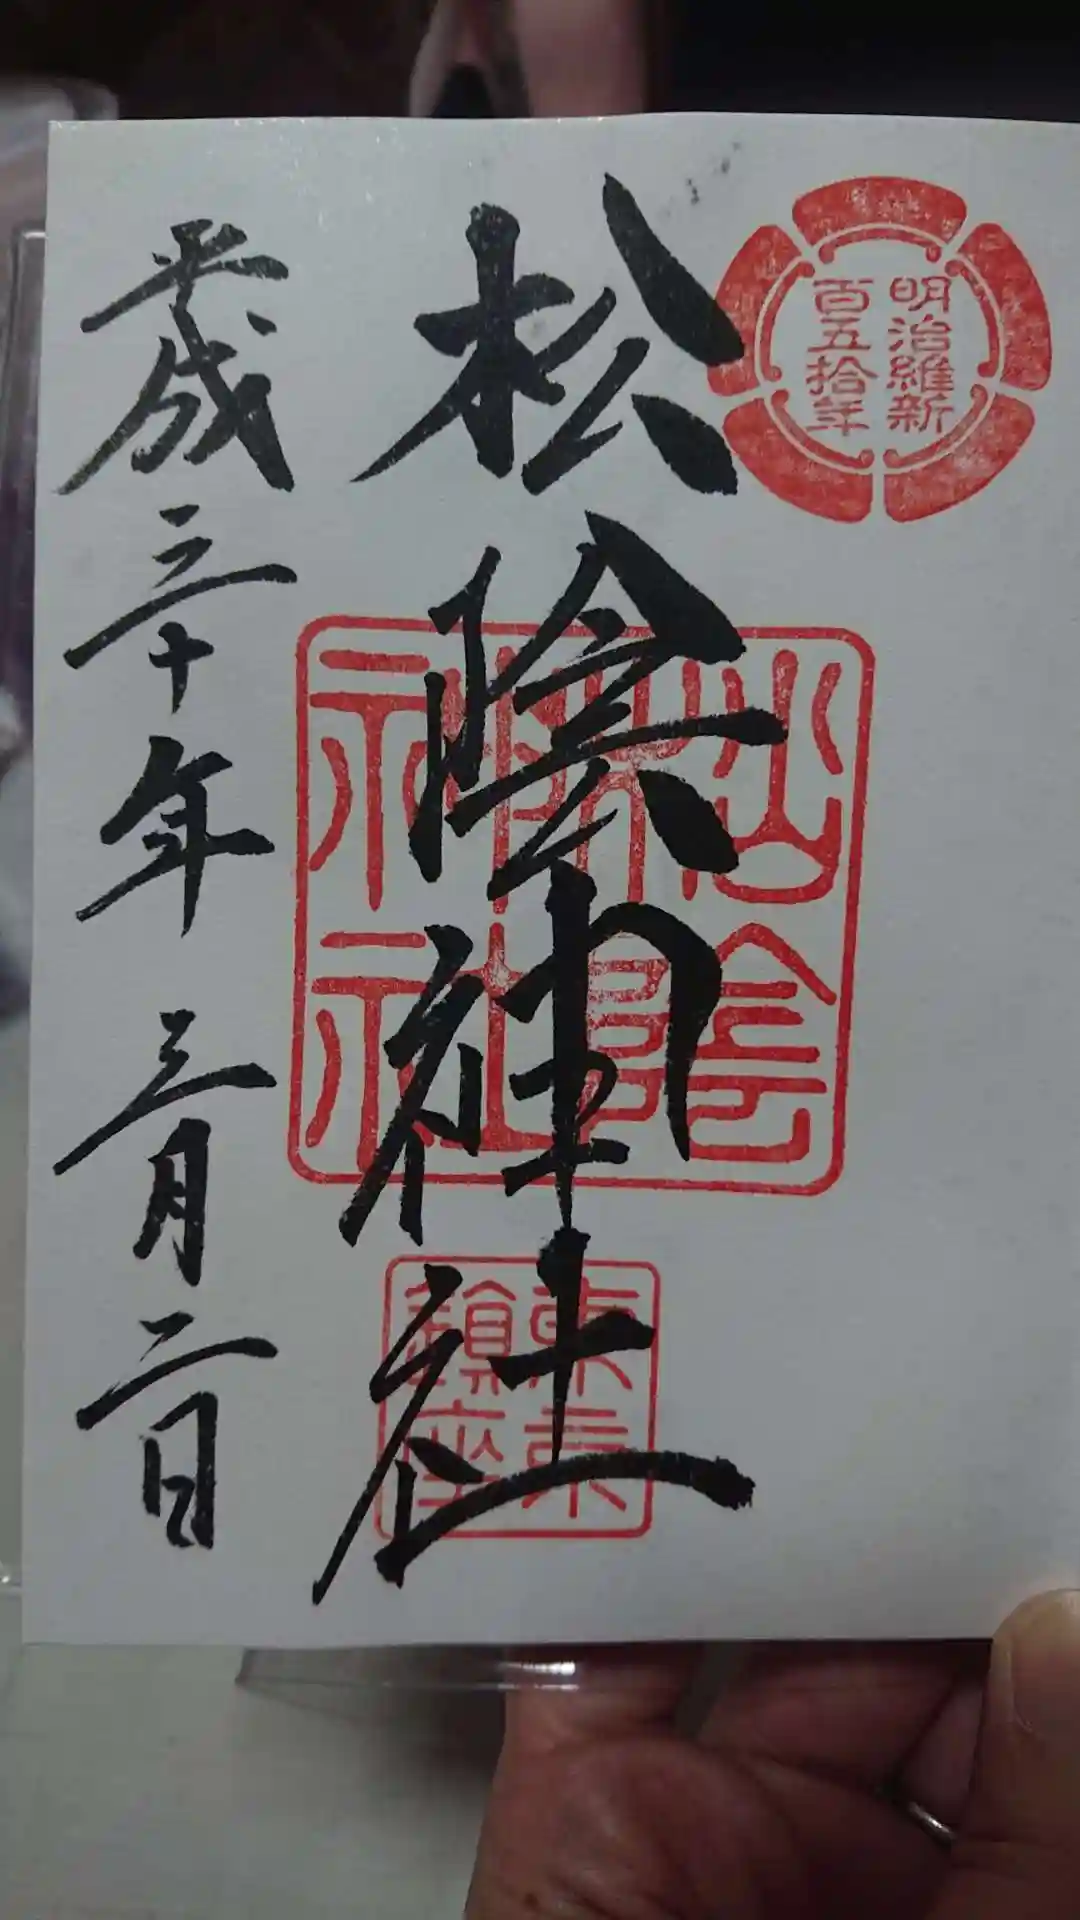 明治維新
百五拾年
松陰神社
松陰
神社
東京
鎮座
平成三十年三月二日